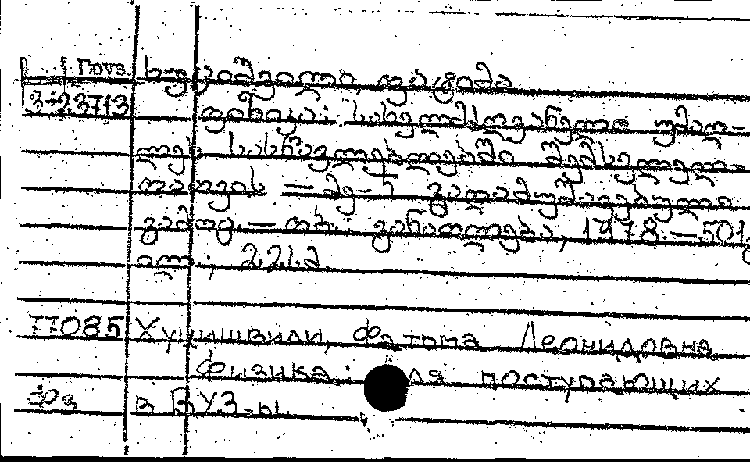 ხუციშვილი, ფატიმა
3-23713 ფიზიკა: სახელმძღვანელო უმაღ-
ლეს სასწავლებლებში შემსვლელ-
თათვის — მე-7 გადამუშავებული
გამოც. — თბ.: განათლება, 1978. — 501გ
ილ.; 22ს.მ.
77085 Хуцишвили, Фатима Леонидовна.
Физика: для поступающих
в ВУЗ-ы.